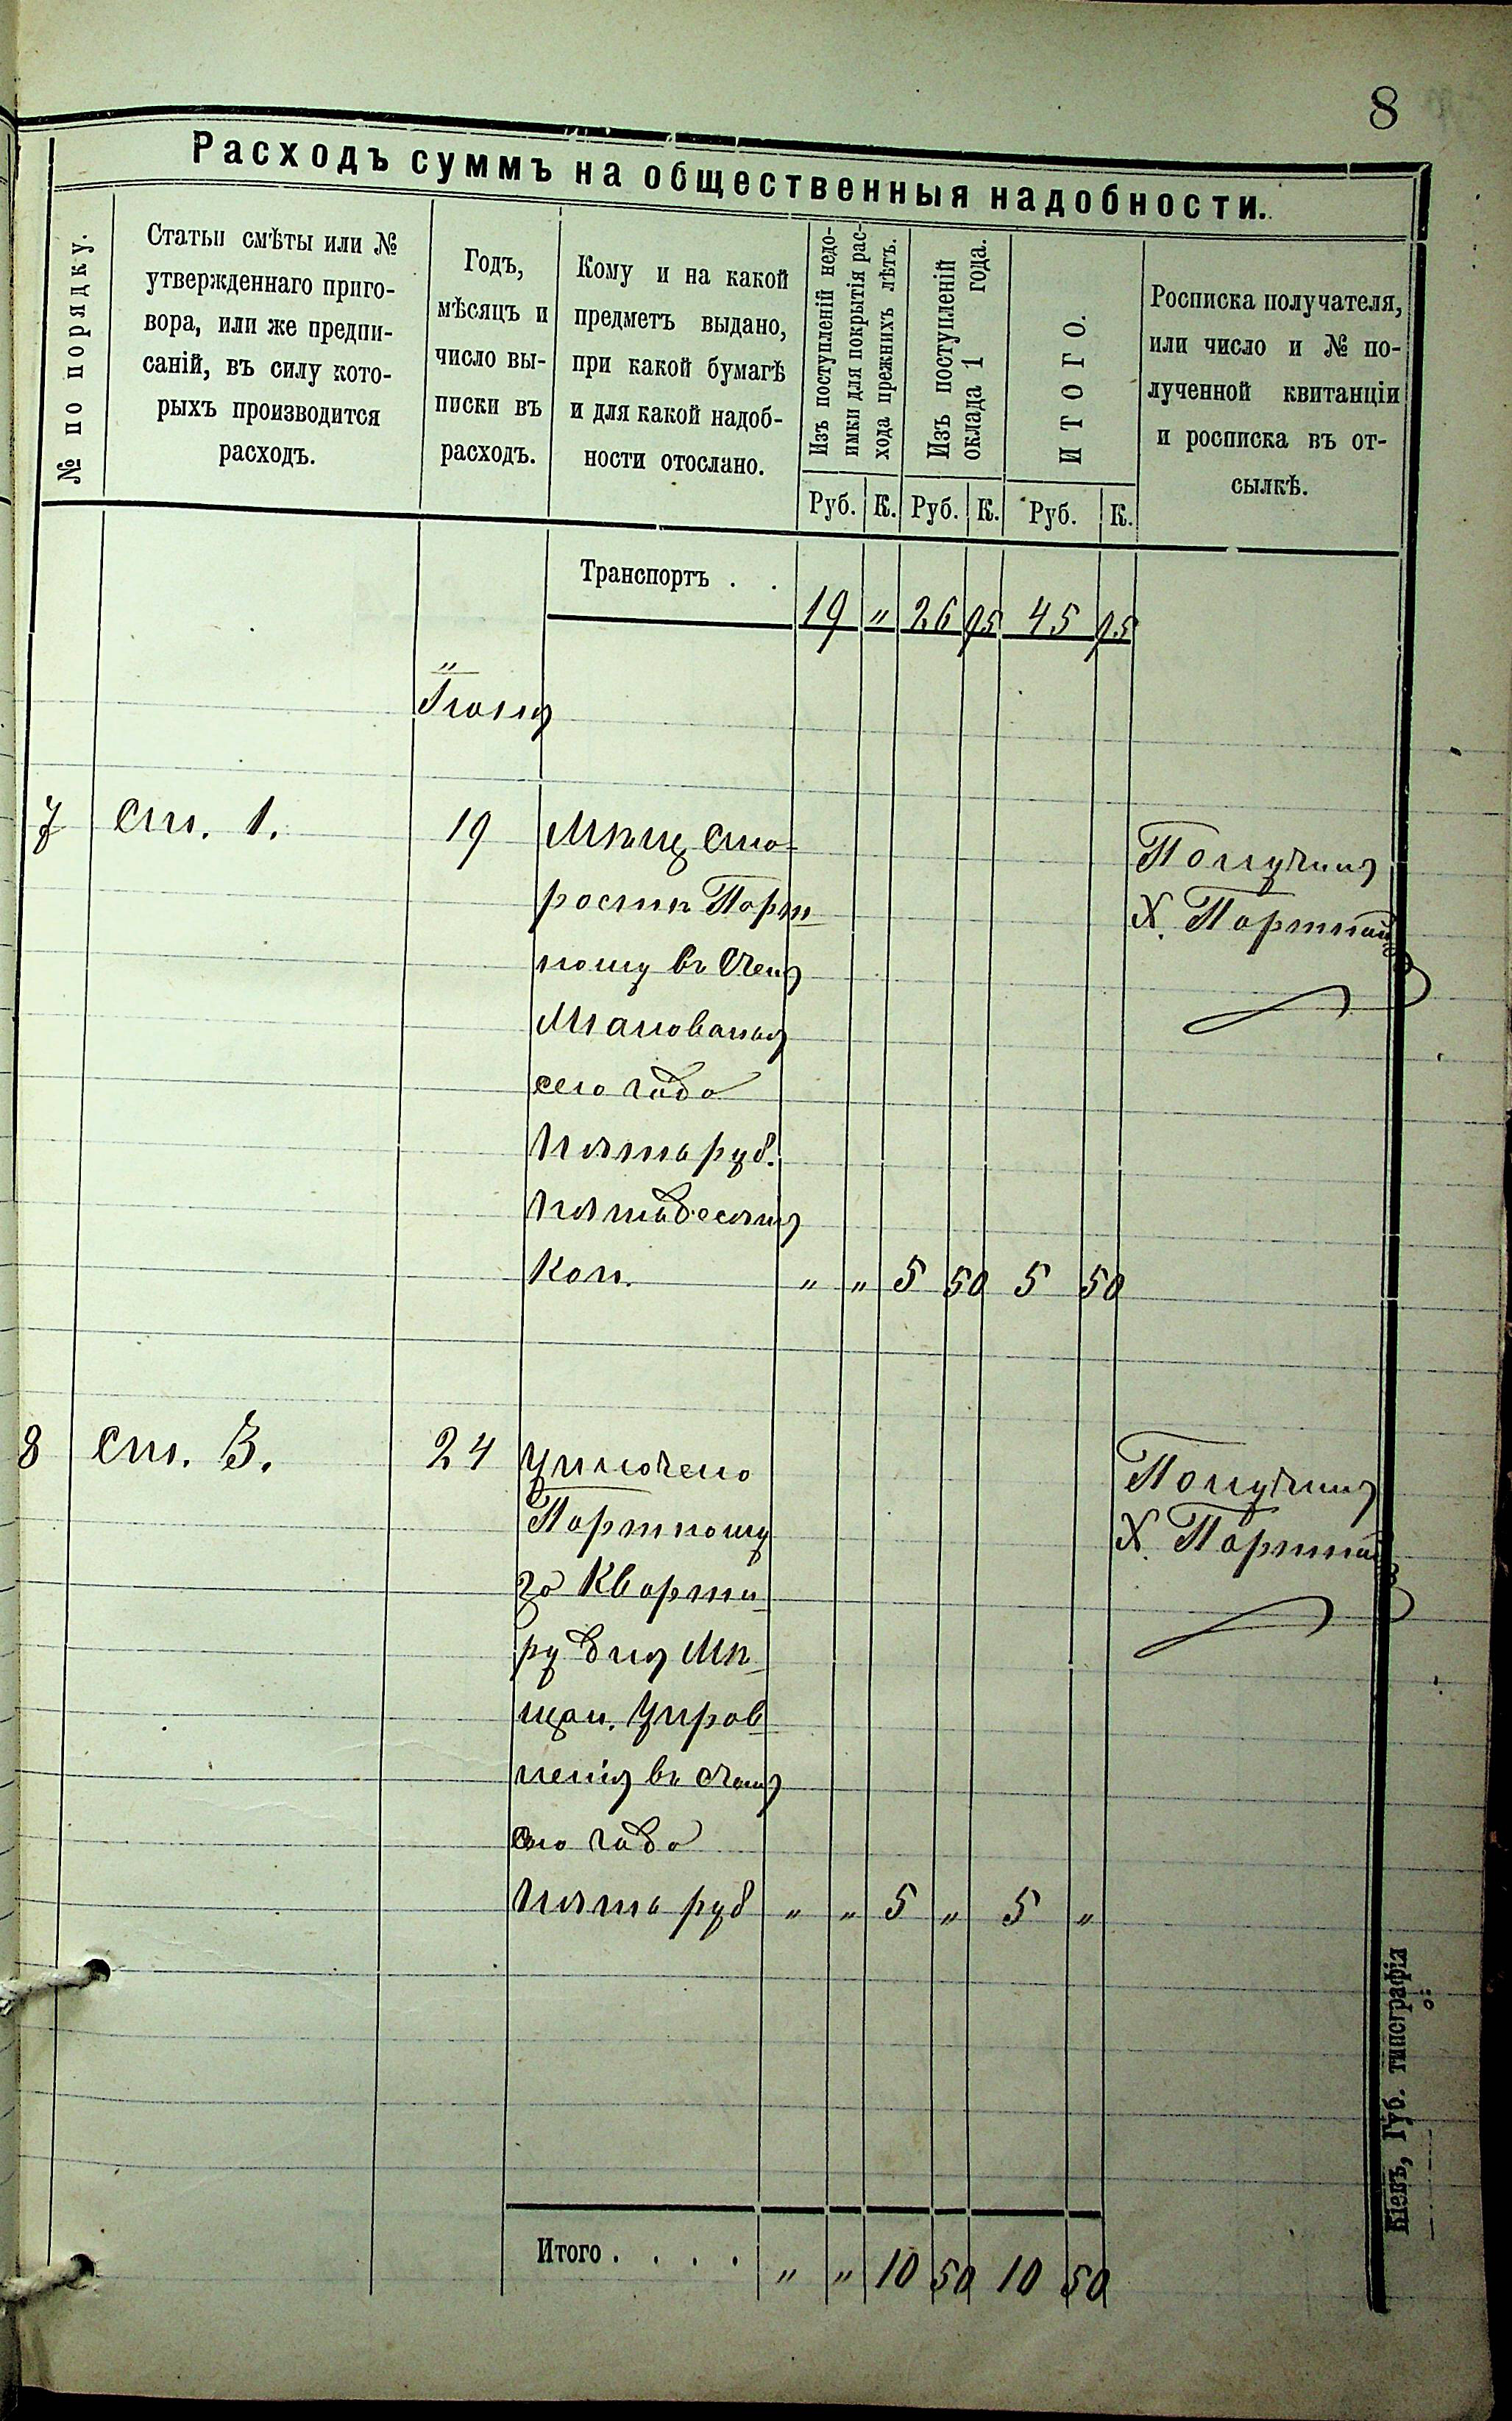 8
Расходъ суммъ на общественныя надобности.
№ по порядку.
Статьи смѣты или №
утвержденнаго приго-
вора, или же предпи-
саній, въ силу кото-
рыхъ производится
расходъ.
Годъ,
мѣсяцъ и
число вы-
писки въ
расходъ.
Кому и на какой
предметъ выдано,
при какой бумагѣ
и для какой надоб-
ности отослано.
Изъ поступленій недо-
имки для покрытія рас-
хода прежнихъ лѣтъ.
Изъ поступленій
оклада 1 года.
ИТОГО.
Росписка получателя,
или число и № по-
лученной квитанціи
и росписка въ от-
сылкѣ.
Руб. К. Руб. К. Руб. К.
Транспортъ . . 19 " 26 95 45 95
"
Іюля
7 Ст. 1. 19 Мѣщ Ста- Получилъ
ростѣ Порт- Х. Портной
ному въ Счетъ
Жалованья
сего года
пять руб.
пятьдесятъ
Коп. " " 5 50 5 50
8 Ст. 3. 24 Уплочено Получилъ
Портному Х. Портной
за Кварти-
ру для Мѣ-
щан. Управ
ленія въ счетъ
сего года
пять руб " " 5 " 5 "
Итого . . . . " " 10 50 10 50
Кіевъ, Губ. типографія